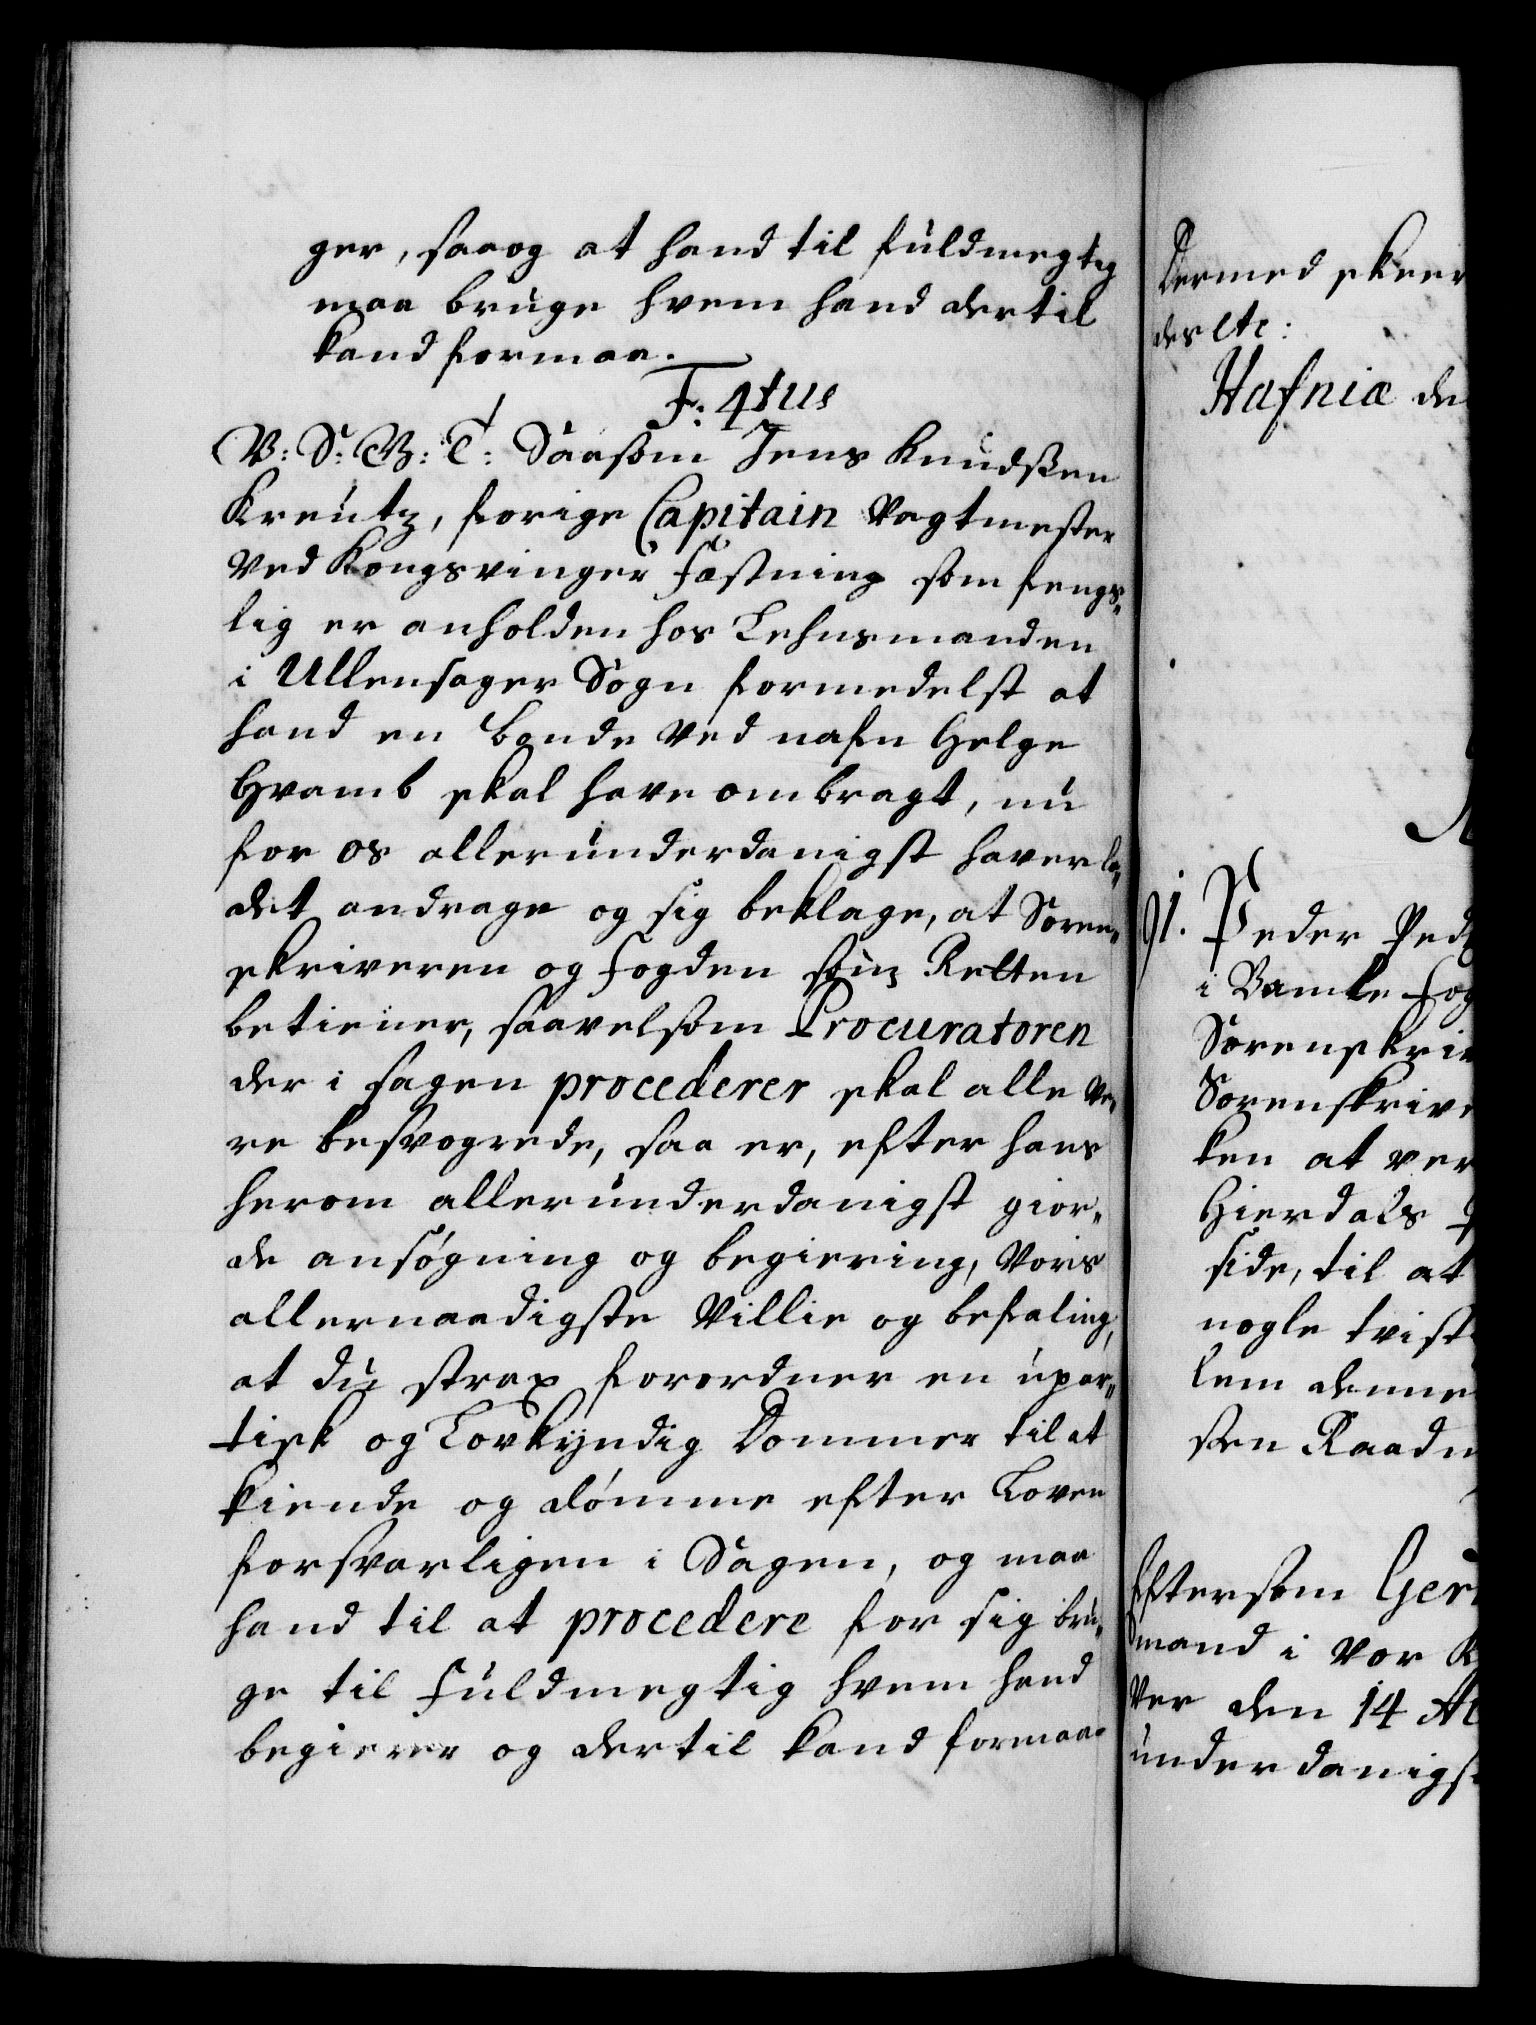 ger, saa og at hand til fuldmegtig
maa bruge hvem hand dertil
kand formaa.
F: 4tus
V: S: G: T: Saasom Jens Knudssen
Kreutz, forige Capitain Vagtmester
ved Kongsvinger Fæstning som fengs„
lig er anholden hos Lehnsmanden
i Ullensager Sogn formedelst at
hand en bonde ved nafn Helge
Hvamb skal have ombragt, nu
for os allerunderdanigst haver la„
det andrage og sig beklage, at Soren„
skriveren og Fogden som Retten
betiener, saavelsom Procuratoren
der i sagen procederer skal alle ve„
re besvogrede, saa er, efter hans
herom allerunderdanigst gior„
de ansøgning og begiering, Voris
allernaadigste Villie og befaling,
at du strax forordner en upar„
tisk og Lovkyndig Dommer til at
kiende og dømme efter Loven
forsvarligen i Sagen, og maa
hand til at procedere for sig bru„
ge til Fuldmegtig hvem hand
begierer og dertil kand formaa.
Dermed skeer
des etc:
Hafniæ de
91. Peder Ped
i Bamble Fog
Sorenskriv
Sorenskrive
ken at ver
Hierdals
side, til at
nogle tvist
lem denne
sen Raadm
Eftersom Ger
mand i vor K
ver den 14
underdanigs